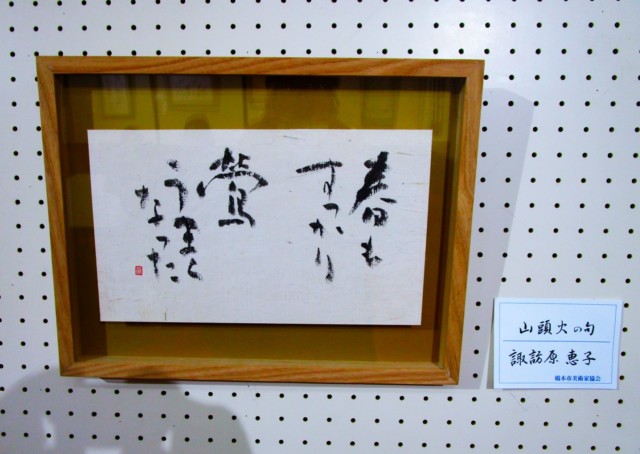 春も
すっかり
鶯
うまく
なった
山頭火の句
諏訪原 恵子
橋本市美術家協会